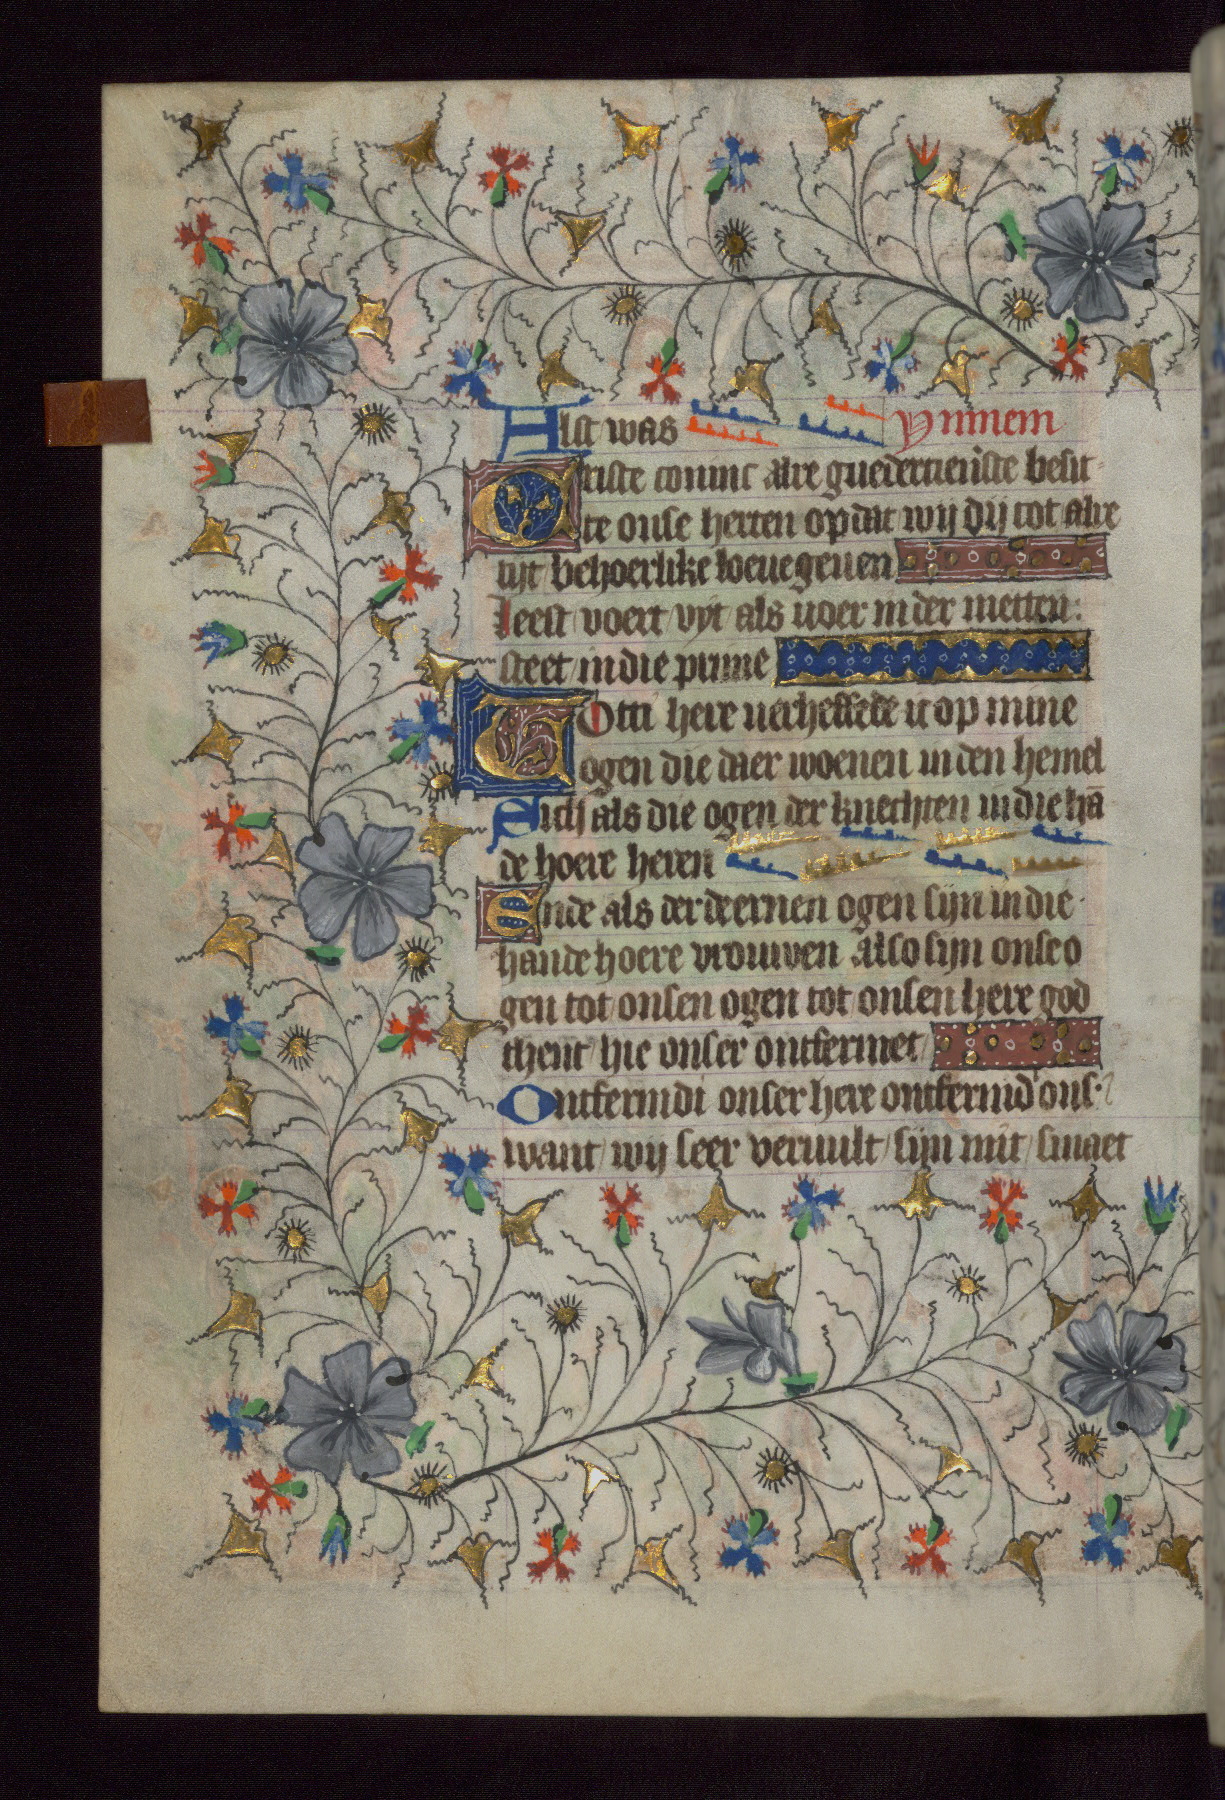 Alst was ymnem
Criste coninc alre guedertienste besit
te onse herten op dat wij dij tot alre
tijt behoerlike loeue geuen
leest voert vyt als uoer in der metten:
steet in die prime
Totti here uerheffede ic op mine
ogen die daer woenen in den hemel
Sich als die ogen der knechten in die hā
de hoere heren
Ende als der deernen ogen sijn in die
hande hoere vrouwen also sijn onse o
gen tot onsen ogen tot onsen here god
thent hie onser ontfermet
Ontfermdi onser here ontfermd ons
want wij seer veruult sijn mit smaet